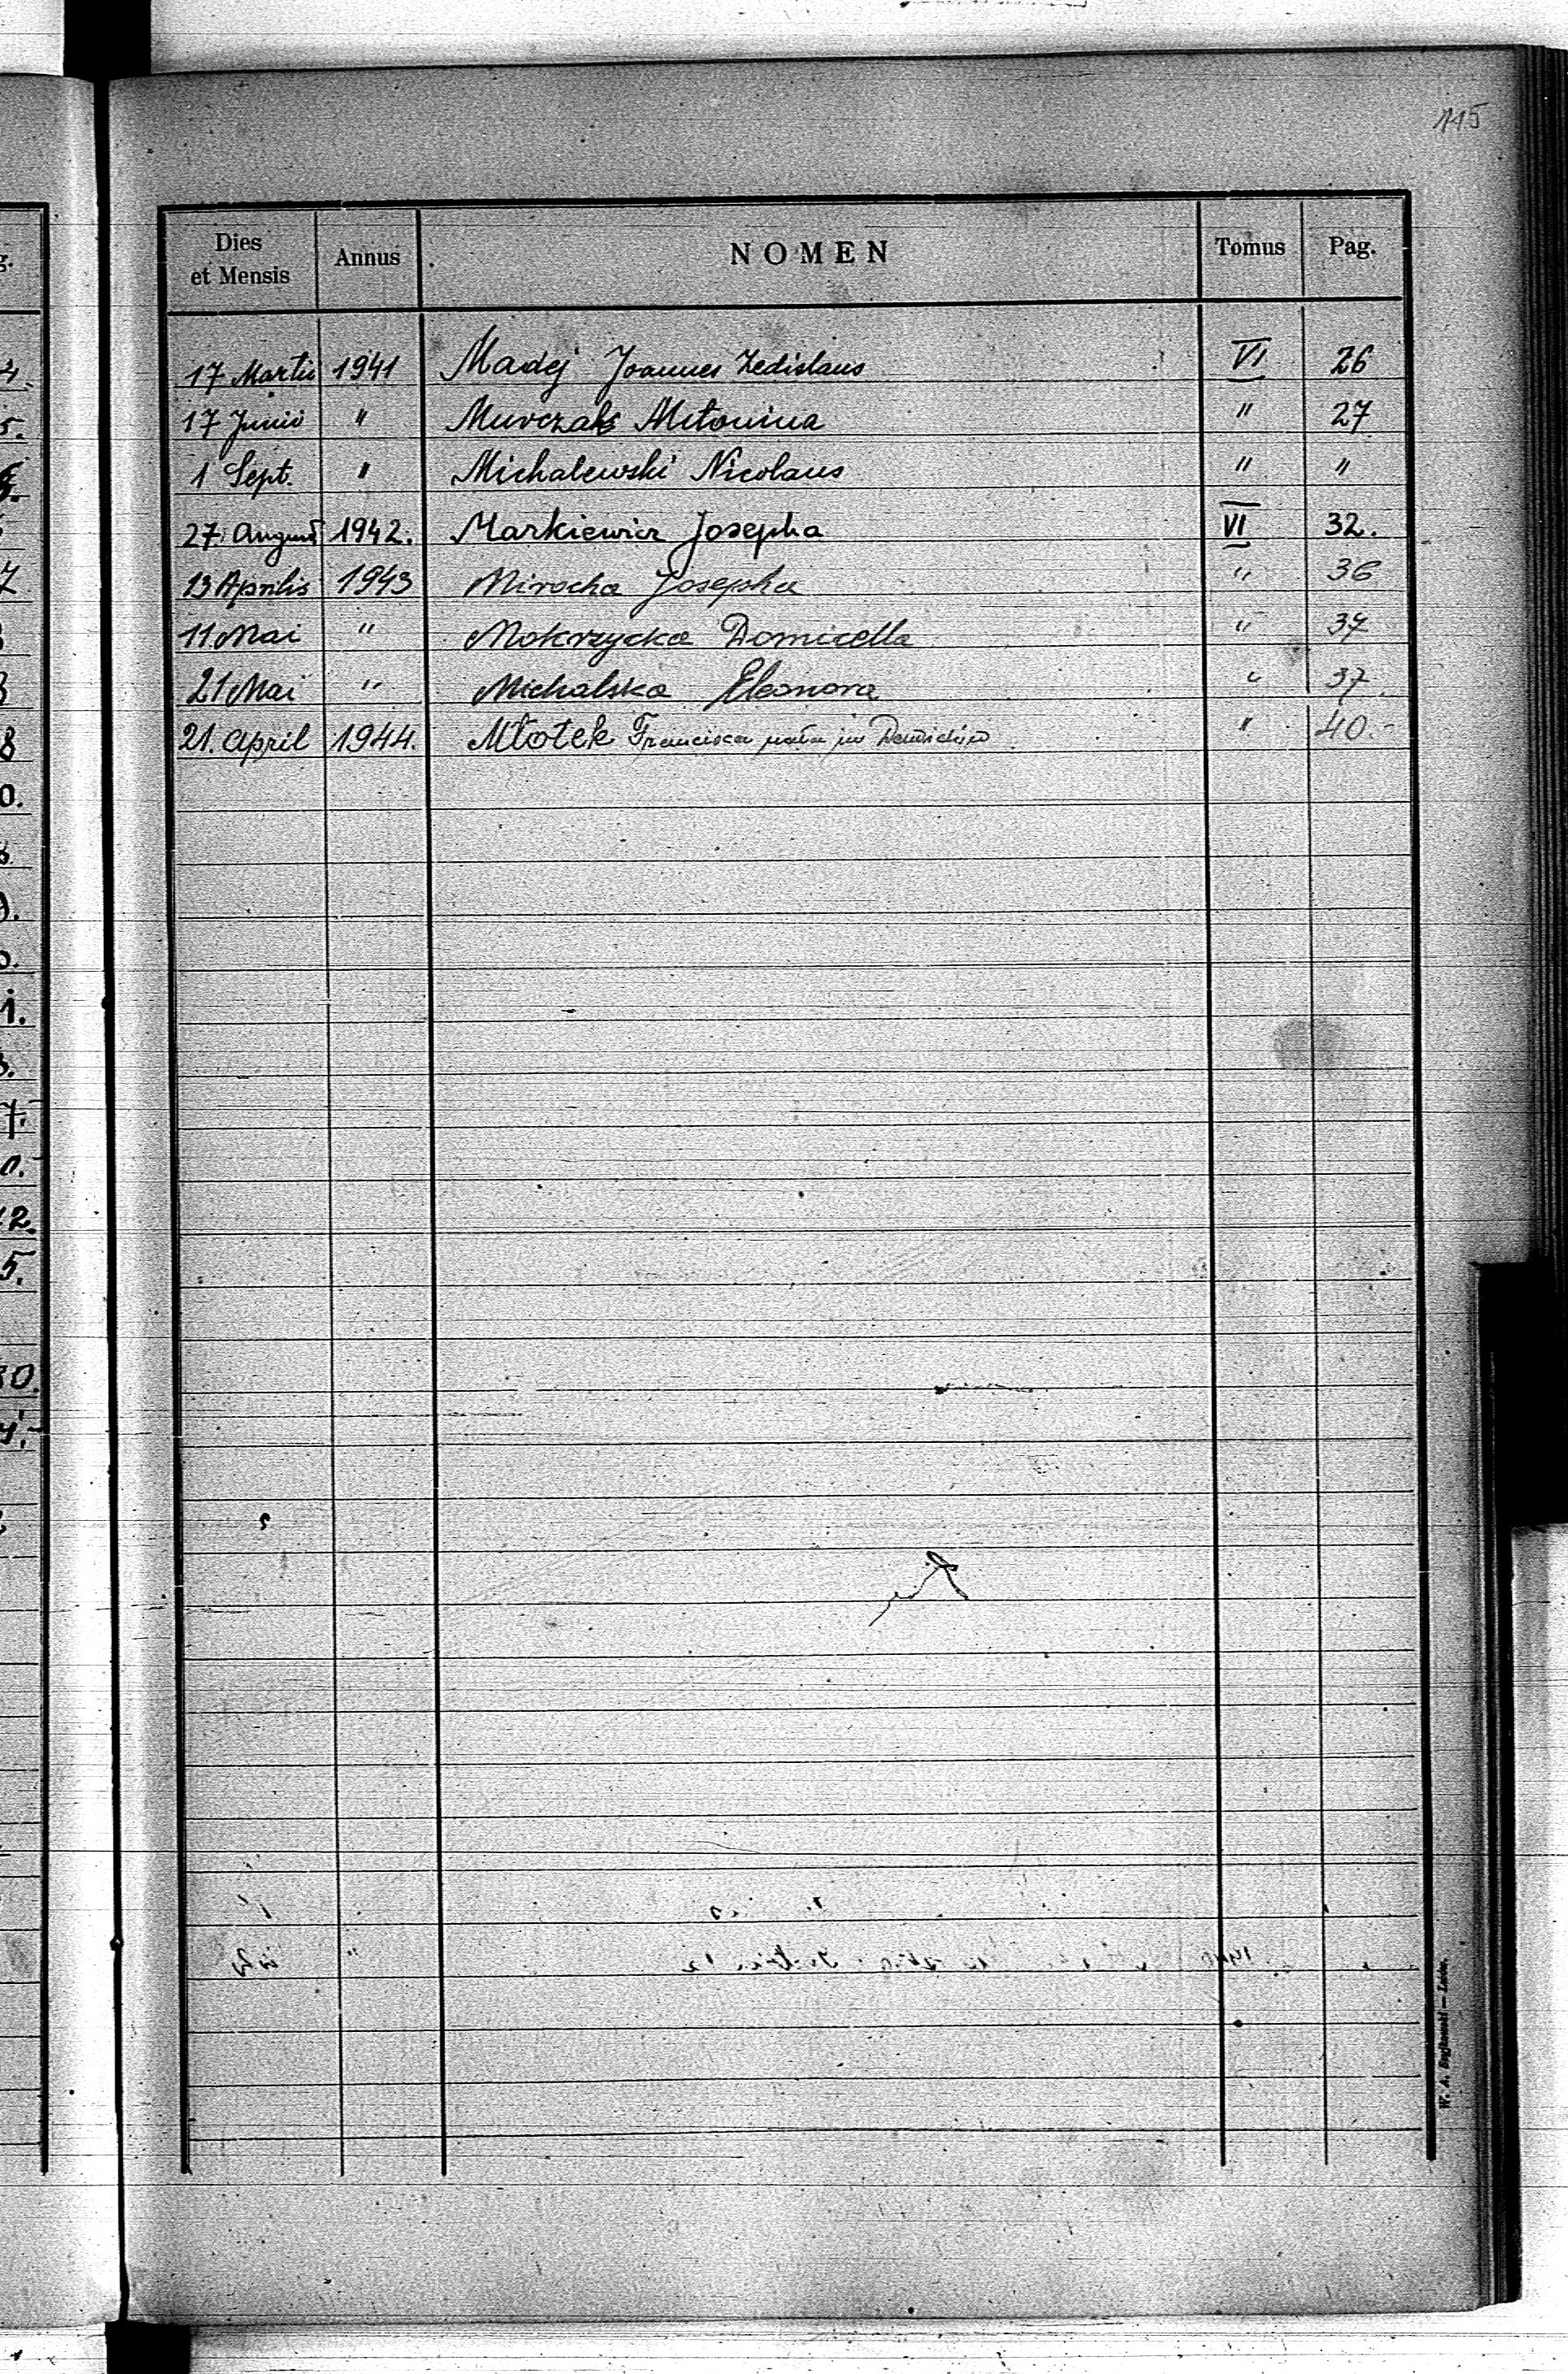 115
Dies et Mensis Annus NOMEN Tomus Pag.
17 Martii 1941 Madej Joannes Zedislaus VI 26
17 Junii " Murczak Antonina " 27
1 Sept. " Michalewski Nicolaus " "
27. August 1942. Markiewicz Josepha VI 32.
13 Aprilis 1943 Mirocha Josepha " 36
11. Mai " Mokrzycka Domicella " 37
21 Mai " Michalska Eleonora " 37
21. April 1944. Młotek Francisca " 40.-